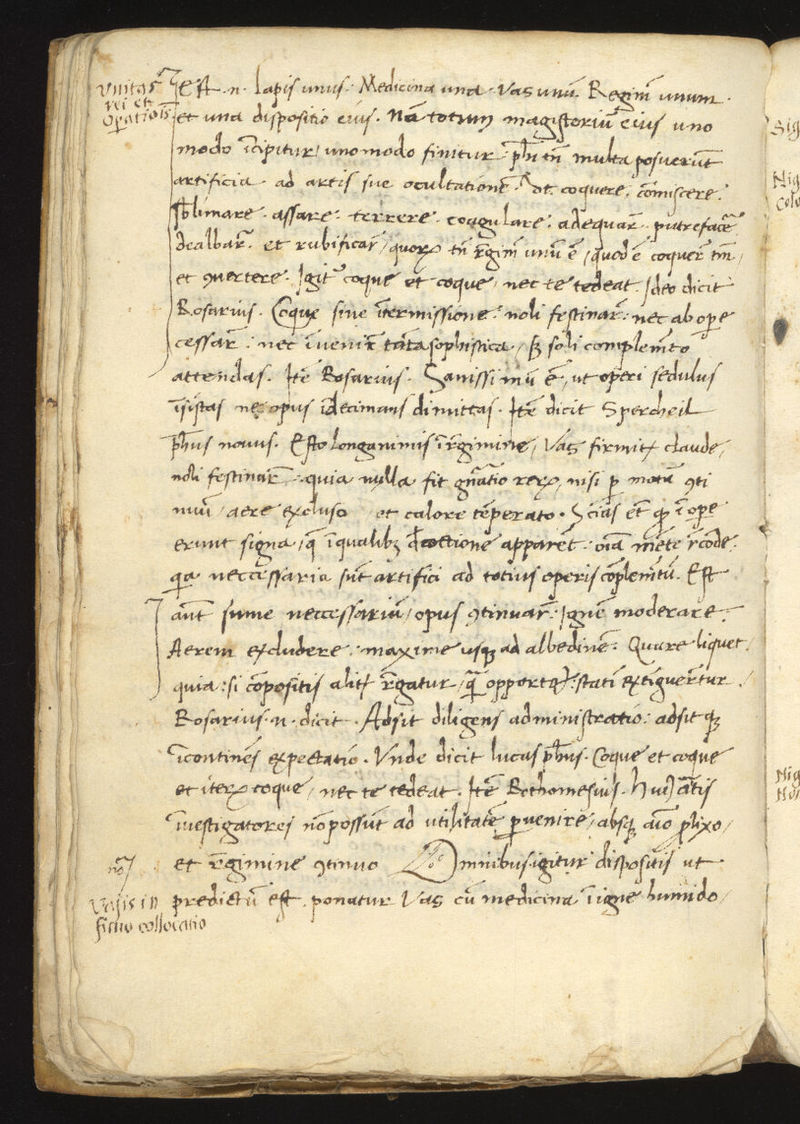 Vnitas
rei et
operationis
Est .n. lapis unus. Medicina una. Vas unū. Regimē unum.
et una dispositio eius. Nā totum magisteriū eius uno
modo īcipitur, uno modo finitur. phi tn̄ multa posuerūt
artificia. ad artis sue ocultationē. coquere. cōmiscere.
sublimare. assare. terrere. coagulare. adequar̄. putrefacere
dealbar̄. et rubificar̄, quorum tn̄ regimē unū ē, quod ē coquer̄ tm̄,
et ꝯuertere. Igitr̄ coque et coque, nec te tedeat. Ideo dicit
Rosarius. Coque sine ītermissione. noli festinar̄. nec ab opere
cessar̄. nec īuenir̄ tāta sophistica, sed soli complemēto
attendas. Itē Rosarius. Sanissimū ē, ut operi sedulus
īsistas ne opus īdecimans dimittas. Itē dicit Spercheil
phūs nouus. Esto longanimis ī regimine, Vas firmiter claude,
noli festinar̄. quia nulla fit gnātio rerum, nisi per motū ꝯti
nuū, aere excluso et calore tēperato. Scias etc̄ ī ope
erunt signa, q̄ ī qualibꝫ decoctione apparēt. oīa mēte recōde.
qia neccessaria sūt artifici ad totius operis cōplemētū. Est
aūt sūme neccessariū, opus ꝯtinuar̄. Ignē moderare.
Aerem excludere. maxime usqꝫ ad albedinē. Quare liquet.
quia: si cōpositis aliter regatur, quā opportꝫ. statī extiguerētur.
Rosarius .n. dicit. Adsit diligens administratio: adsit qꝫ
īcontinēs expectatio. Vnde dicit lucas phūs. Coque et coque
et iterum coque, nec te tedeat. Itē Bothomesuis. Huius artis
īuestigatores nō possūt ad utilitatē peruenire, absqꝫ aīo prolixo,
et regimine ꝯtinuo Omnibus igitur dispositis ut
predictū est. ponatur Vas cū medicina ī igne humido,
Vasis in
collocatio